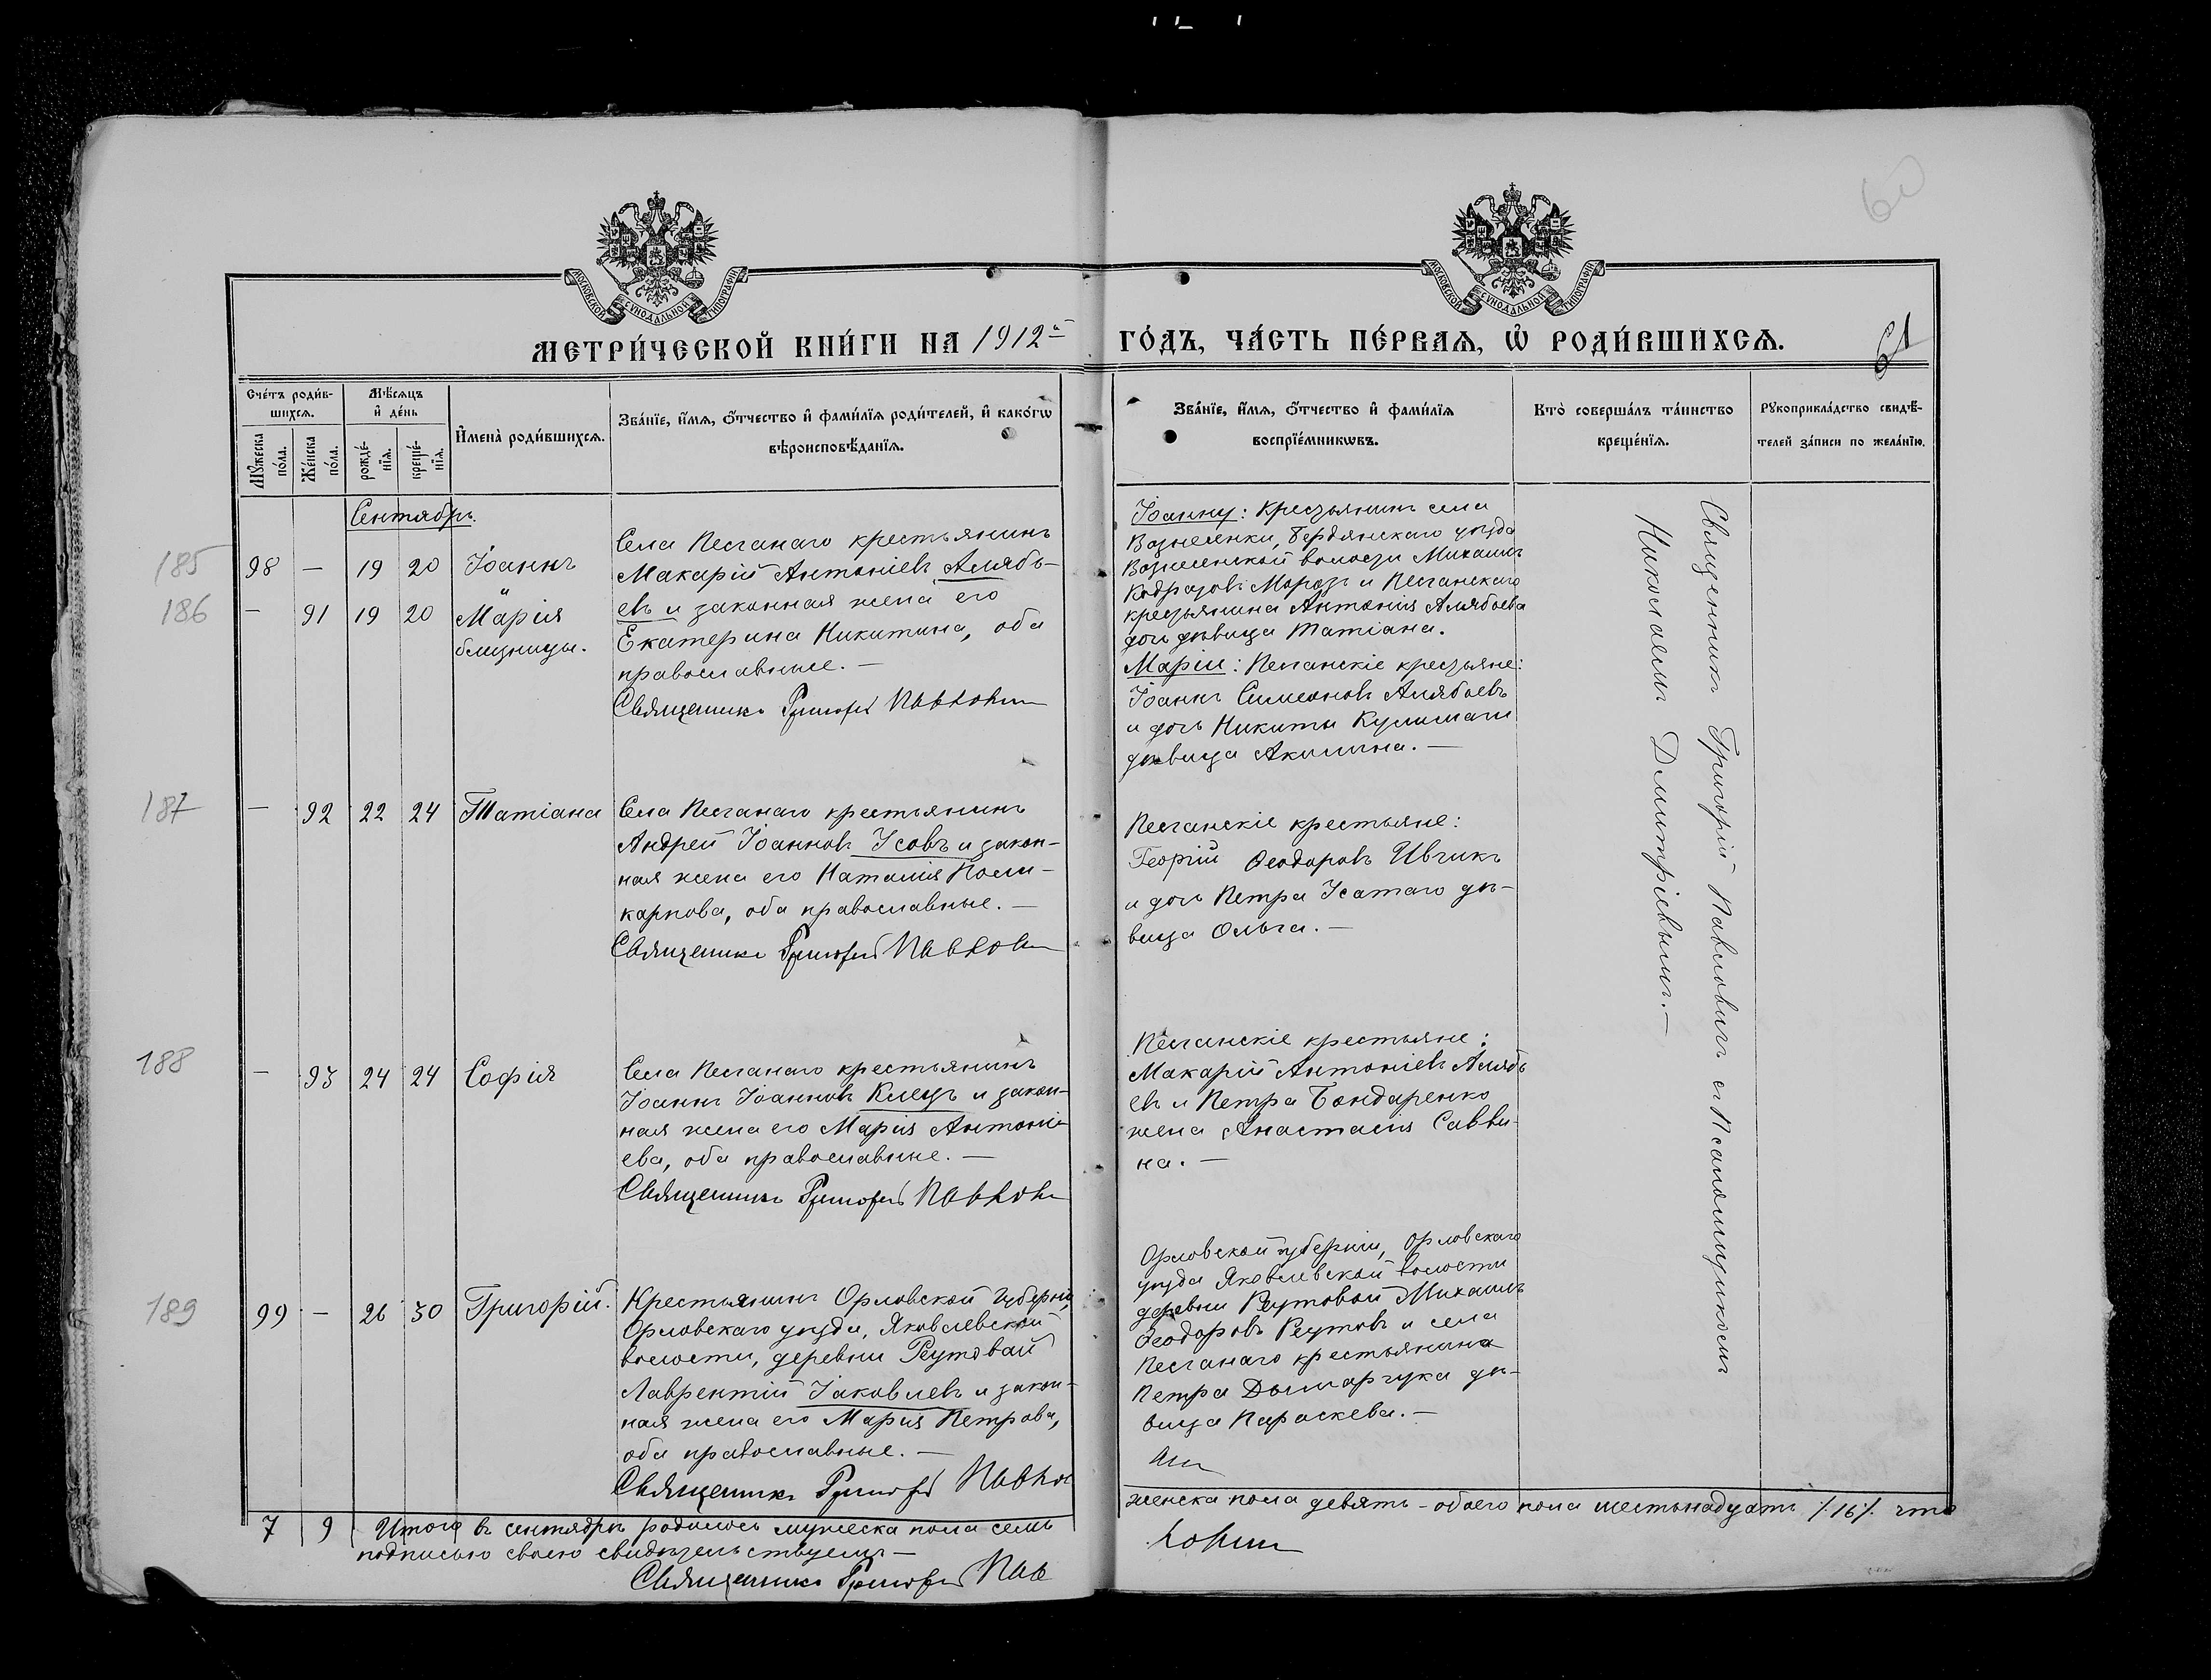 60
61
МОСКОВСКОЙ СУНОДАЛЬНОЙ ТИПОГРАФІИ
МОСКОВСКОЙ СУНОДАЛЬНОЙ ТИПОГРАФІИ
МЕТРИ́ЧЕСКОЙ КНИ́ГИ НА 1912й ГО́ДЪ, ЧА́СТЬ ПЕ́РВАЯ, Ѽ РОДИ́ВШИХСЯ.
Сче́тъ роди́в-
шихсѧ.
Мѣ́сѧцъ
и҆ де́нь
Мꙋ́жеска
по́ла.
Же́нска
по́ла.
рожде́-
нїѧ.
креще́-
нїѧ.
И҆мена̀ роди́вшихсѧ.
Зва́нїе, и҆́мѧ, ѻ҆́тчество и҆ фами́лїѧ роди́телей, и҆ како́гѡ
вѣроисповѣ́данїѧ.
Зва́нїе, и҆́мѧ, ѻ҆́тчество и҆ фами́лїѧ
воспрїе́мникѡвъ.
Кто̀ соверша́лъ та́инство
креще́нїѧ.
Рꙋкоприкла́дство свидѣ́-
телей за́писи по жела́нїю.
Сентябрь.
185
98 — 19 20 Іоаннъ
186
— 91 19 20 Марія
близнецы.
Села Песчанаго крестьянинъ
Макарій Антоніевъ Алябь-
евъ и законная жена его
Екатерина Никитина, оба
православные. —
Священникъ Григорій Павловичъ
Іоанну: крестьянинъ села
Вознесенки, Бердянскаго уѣзда
Вознесенской волости Михаилъ
Кодратовъ Морозъ и Песчанскаго
крестьянина Антонія Алябьева
дочь дѣвица Татіана.
Маріи: Песчанскіе крестьяне:
Іоаннъ Симеоновъ Алябьевъ
и дочь Никиты
дѣвица Акилина. —
Священникъ Григорій Павловичъ съ Псаломщикомъ
Николаемъ Димитріевымъ. —
187
— 92 22 24 Татіана
Села Песчанаго крестьянинъ
Андрей Іоанновъ Усовъ и закон-
ная жена его Наталія Поли-
карпова, оба православные. —
Священникъ Григорій Павлович
Песчанскіе крестьяне:
Георгій Ѳеодоровъ Ивчикъ
и дочь Петра Усатаго дѣ-
вица Ольга. —
188
— 93 24 24 Софія
Села Песчанаго крестьянинъ
Іоаннъ Іоанновъ Клецъ и закон-
ная жена его Марія Антоні-
ева, оба православные. —
Священникъ Григорій Павлович
Песчанскіе крестьяне:
Макарій Антоніевъ Алябь
евъ и Петра Бондаренко
жена Анастасія Савви-
на. —
189
99 — 26 30 Григорій.
Крестьянинъ Орловской губерніи,
Орловскаго уѣзда, Яковлевской
волости, деревни Реутовой
Лаврентій Іаковлевъ и закон-
ная жена его Марія Петрова,
оба православные. —
Священникъ Григорій Павлов
Орловской губерніи, Орловскаго
уѣзда Яковлевской волости
деревни Реутовой Михаилъ
Ѳеодоровъ Реутовъ и села
Песчанаго крестьянина
Петра Дымарчука дѣ-
вица Параскева. —
7 9 Итого въ сентябрѣ родилось мужеска пола семь
женска пола девять – обоего пола шестьнадцать /.16/. что
подписью своею свидѣтельствуемъ —
Священникъ Григорій Пав
ловичъ